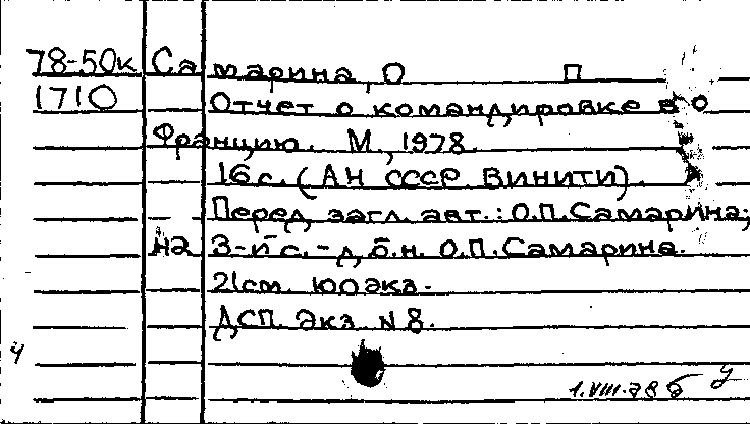 78-50к Самарина, О П
1710 Отчет о командировке во
Францию. М., 1978.
16 с. (АН СССР. ВИНИТИ).
Перед загл. авт.: О.П.Самарина;
н2 3-й с. - д.б.н. О.П.Самарина.
21см. 100экз.
ДСП. Экз. N 8.
ч
1.VIII.78 б у